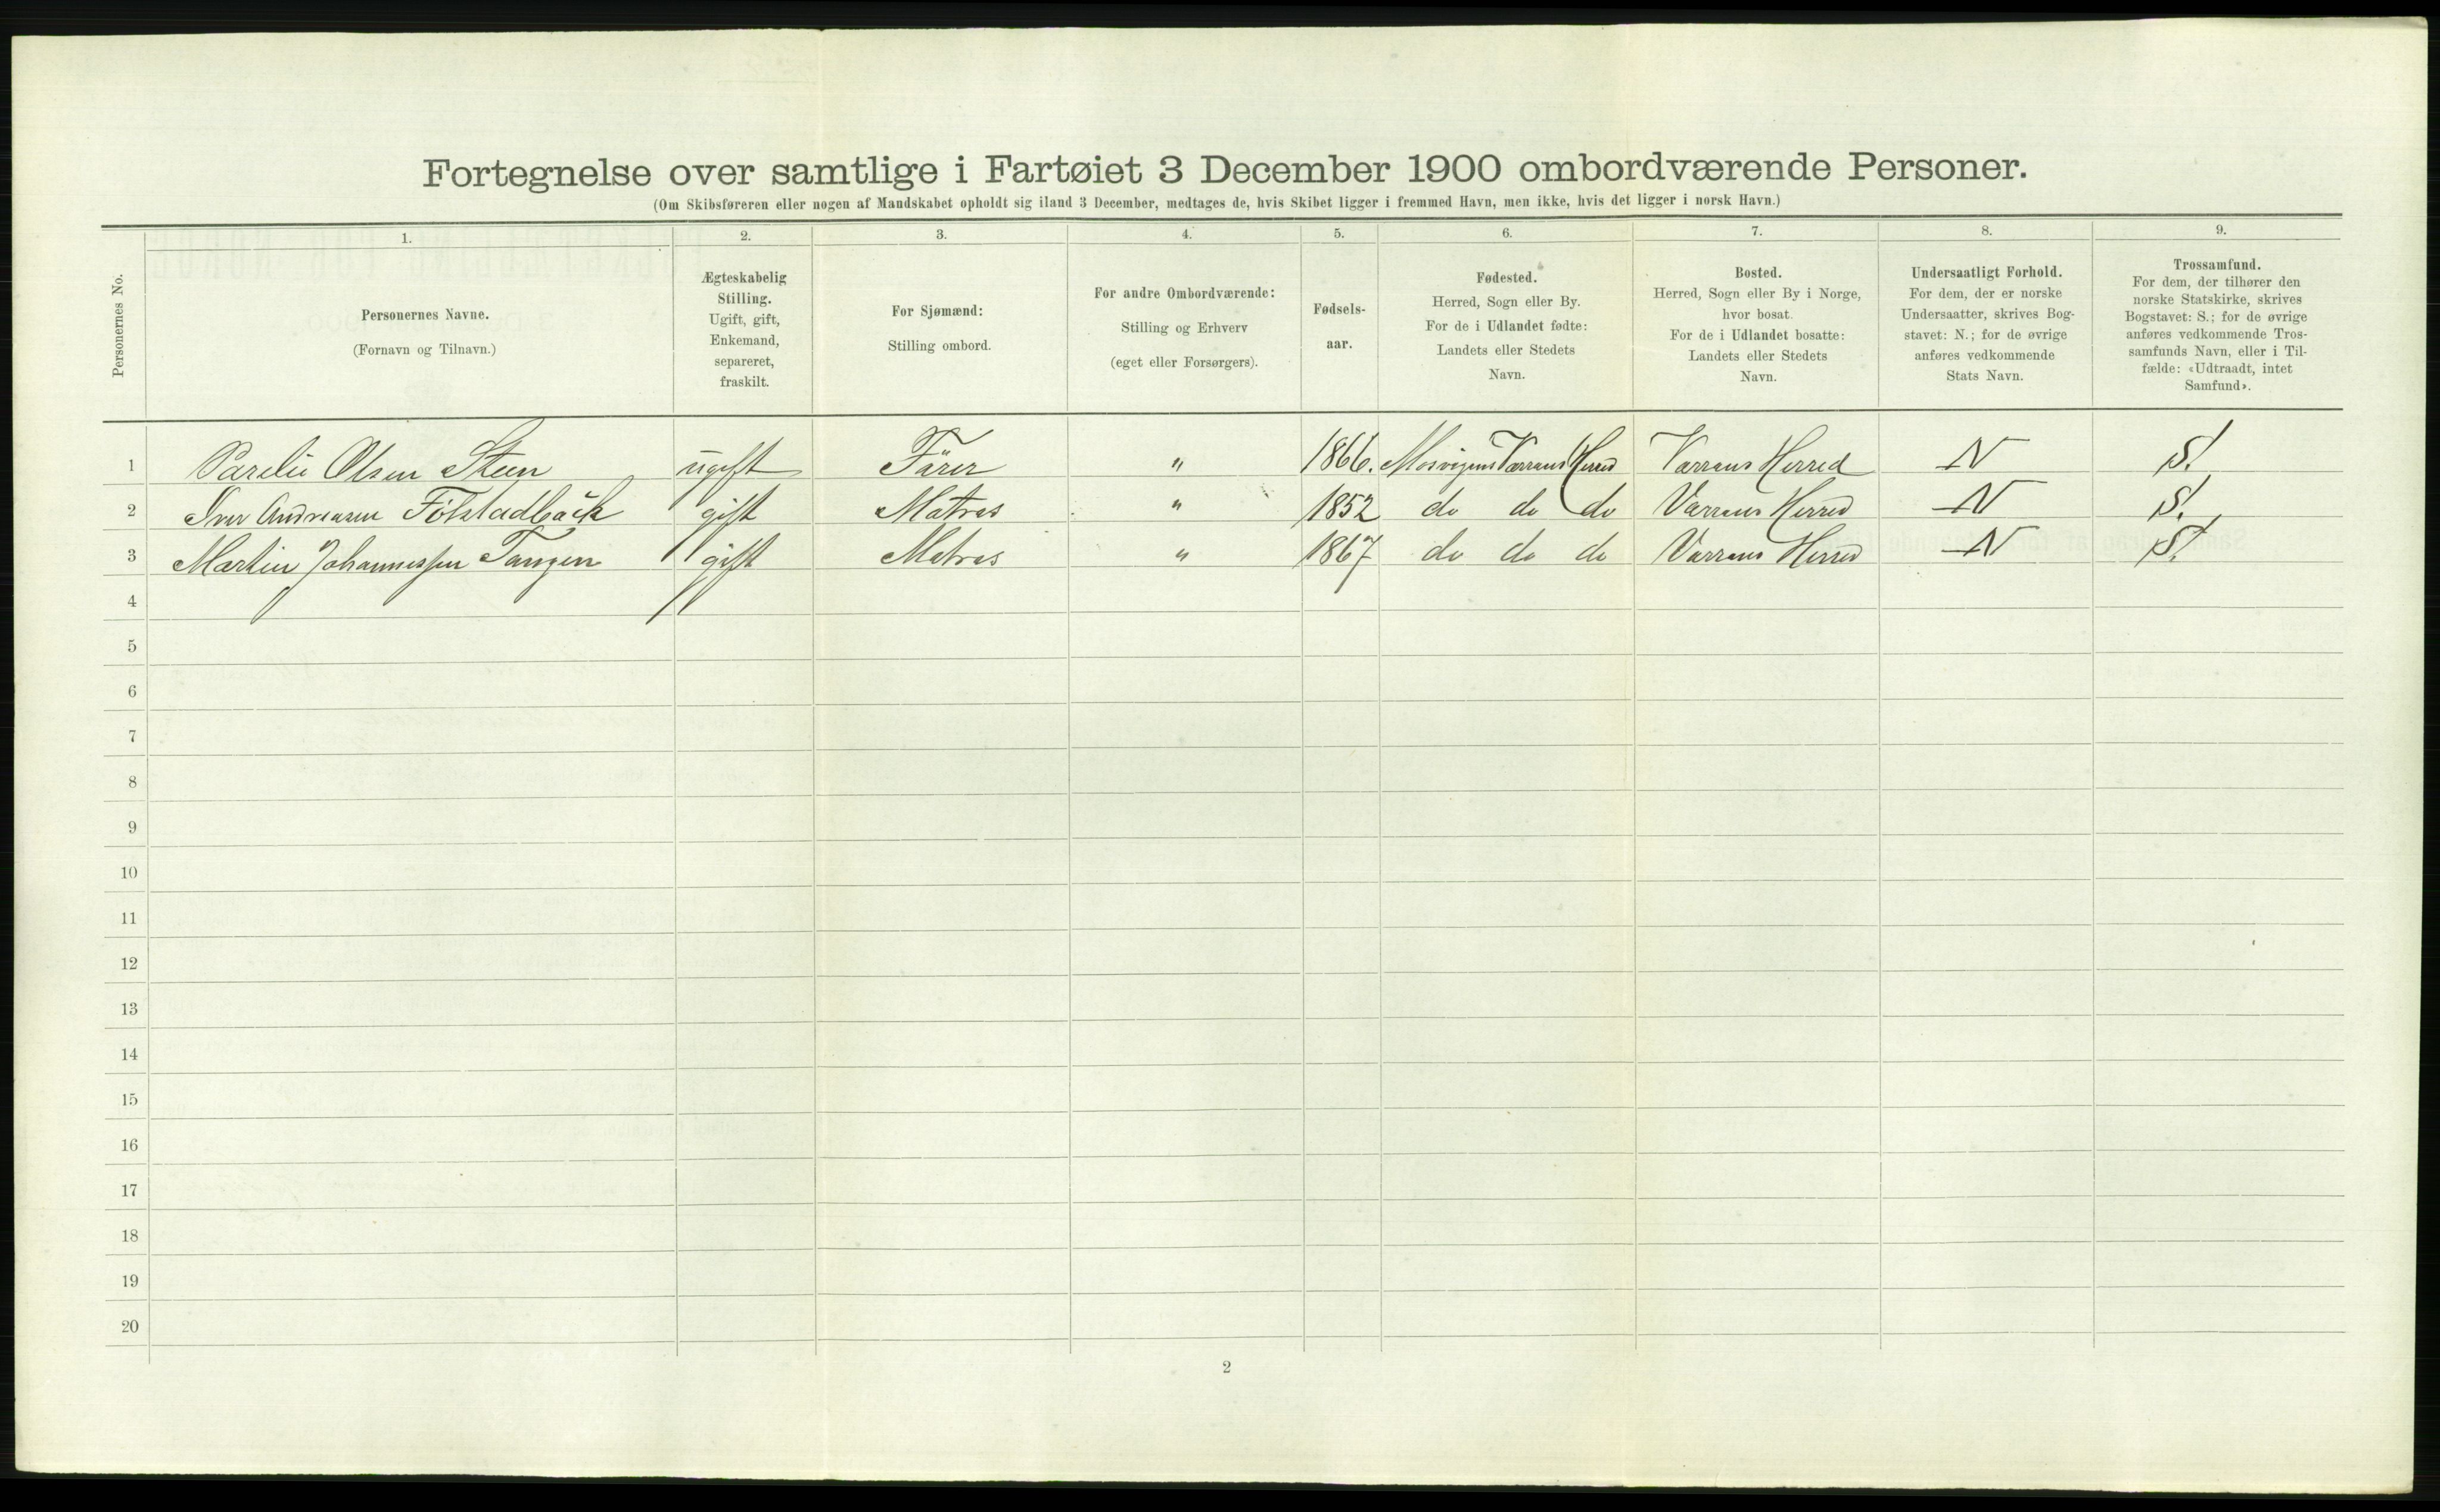 Fortegnelse over samtlige i Fartøiet 3 December 1900 ombordværende Personer.
(Om Skibsføreren eller nogen af Mandskabet opholdt sig iland 3 December, medtages de, hvis Skibet ligger i fremmed Havn, men ikke, hvis det ligger i norsk Havn.)
Personernes No.
1. 2. 3. 4. 5. 6. 7. 8. 9.
Personernes Navne.
(Fornavn og Tilnavn.)
Ægteskabelig
Stilling.
Ugift, gift,
Enkemand,
separeret,
fraskilt.
For Sjømænd:
Stilling ombord.
For andre Ombordværende:
Stilling og Erhverv
(eget eller Forsørgers).
Fødsels-
aar.
Fødested.
Herred, Sogn eller By.
For de i Udlandet fødte:
Landets eller Stedets
Navn.
Bosted.
Herred, Sogn eller By i Norge,
hvor bosat.
For de i Udlandet bosatte:
Landets eller Stedets
Navn.
Undersaatligt Forhold.
For dem, der er norske
Undersaatter, skrives Bog-
stavet: N.; for de øvrige
anføres vedkommende
Stats Navn.
Trossamfund.
For dem, der tilhører den
norske Statskirke, skrives
Bogstavet: S.; for de øvrige
anføres vedkommende Tros-
samfunds Navn, eller i Til-
fælde: «Udtraadt, intet
Samfund».
1 Olsen Steen ugift Förer " 1866. Mosvigens Varrans Herred Varrans Herred N S.
2 Iver Andreasen Fölstadbäck gift Matros " 1852 do do do Varrans Herred N S.
3 Martin Johannessen Tangen gift Matros " 1867 do do do Varrans Herred N S.
4
5
6
7
8
9
10
11
12
13
14
15
16
17
18
19
20
2